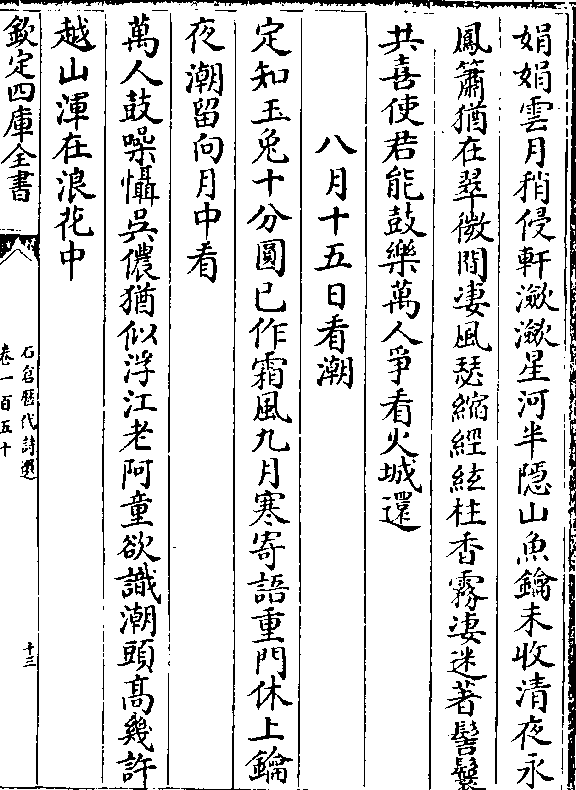 娟娟雲月稍侵軒瀲瀲星河半隱山魚鑰未收清夜永
鳳簫猶在翠微間凄風瑟縮經絃柱香霧凄迷著髻鬟
共喜使君能鼓樂萬人爭看火城還
八月十五日看潮
定知玉兔十分圓已作霜風九月寒寄語重門休上鑰
夜潮留向月中看
萬人鼓噪懾吳儂猶似浮江老阿童欲識潮頭高幾許
越山渾在浪花中
欽定四庫全書
石倉歷代詩選
卷一百五十
十三